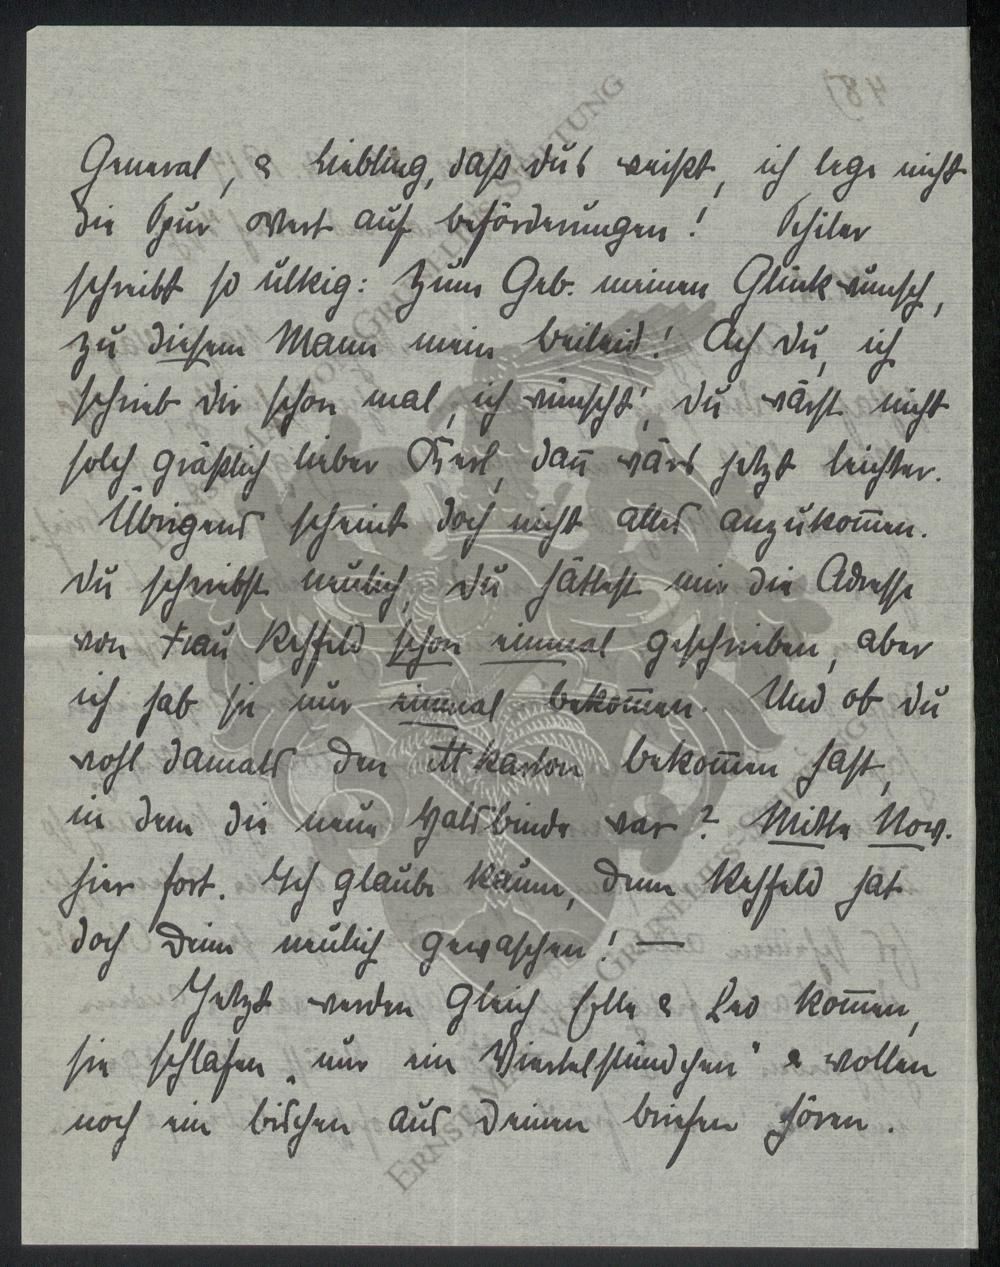 General, & Liebling, daß dus weißt, ich lege nicht
die Spur Wert auf Beförderungen!
schreibt so ulkig: Zum Geb. meinen Glückwunsch,
zu diesem Mann mein Beileid! Ach du, ich
schrieb dir schon mal, ich wünscht', du wärst nicht
solch gräßlich lieber Kerl, dann wärs jetzt leichter.
Übrigens scheint doch nicht alles anzukommen.
Du schriebst neulich, du hättest mir die Adresse
von Frau Rehfeld schon einmal geschrieben, aber
ich hab sie nur einmal bekommen. Und ob du
wohl damals den karton bekommen hast,
in dem die neue Halsbinde war? Mitte Nov.
hier fort. Ich glaube kaum, denn Rehfeld hat
doch Deine neulich gewaschen! —
Jetzt werden gleich & Leo kommen,
sie schlafen „nur ein Viertelstündchen" & wollen
noch ein bischen aus Deinen Briefen hören.